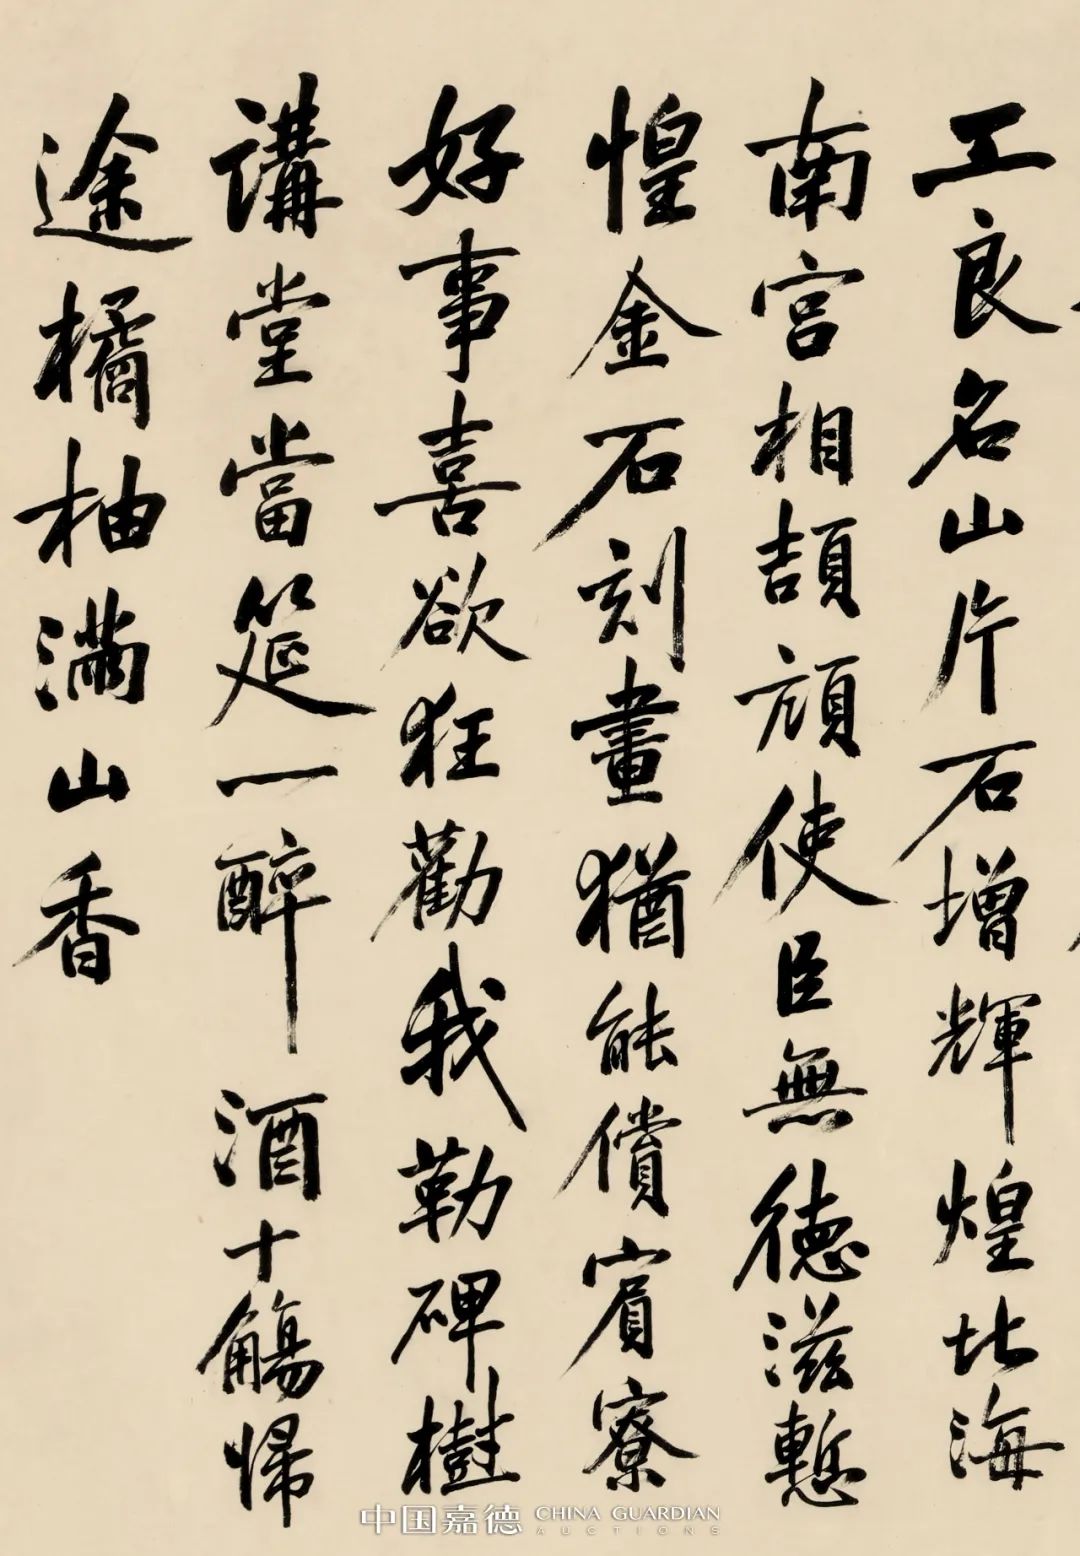 工良名山片石增輝煌北海
南宮相頡頏使臣無德滋慙
惶金石刻畫猶能償賓寮
好事喜欲狂勸我勒碑樹
講堂當筵一醉酒十觴歸
途橘柚滿山香
中国嘉德 CHINA GUARDIAN
AUCTIONS